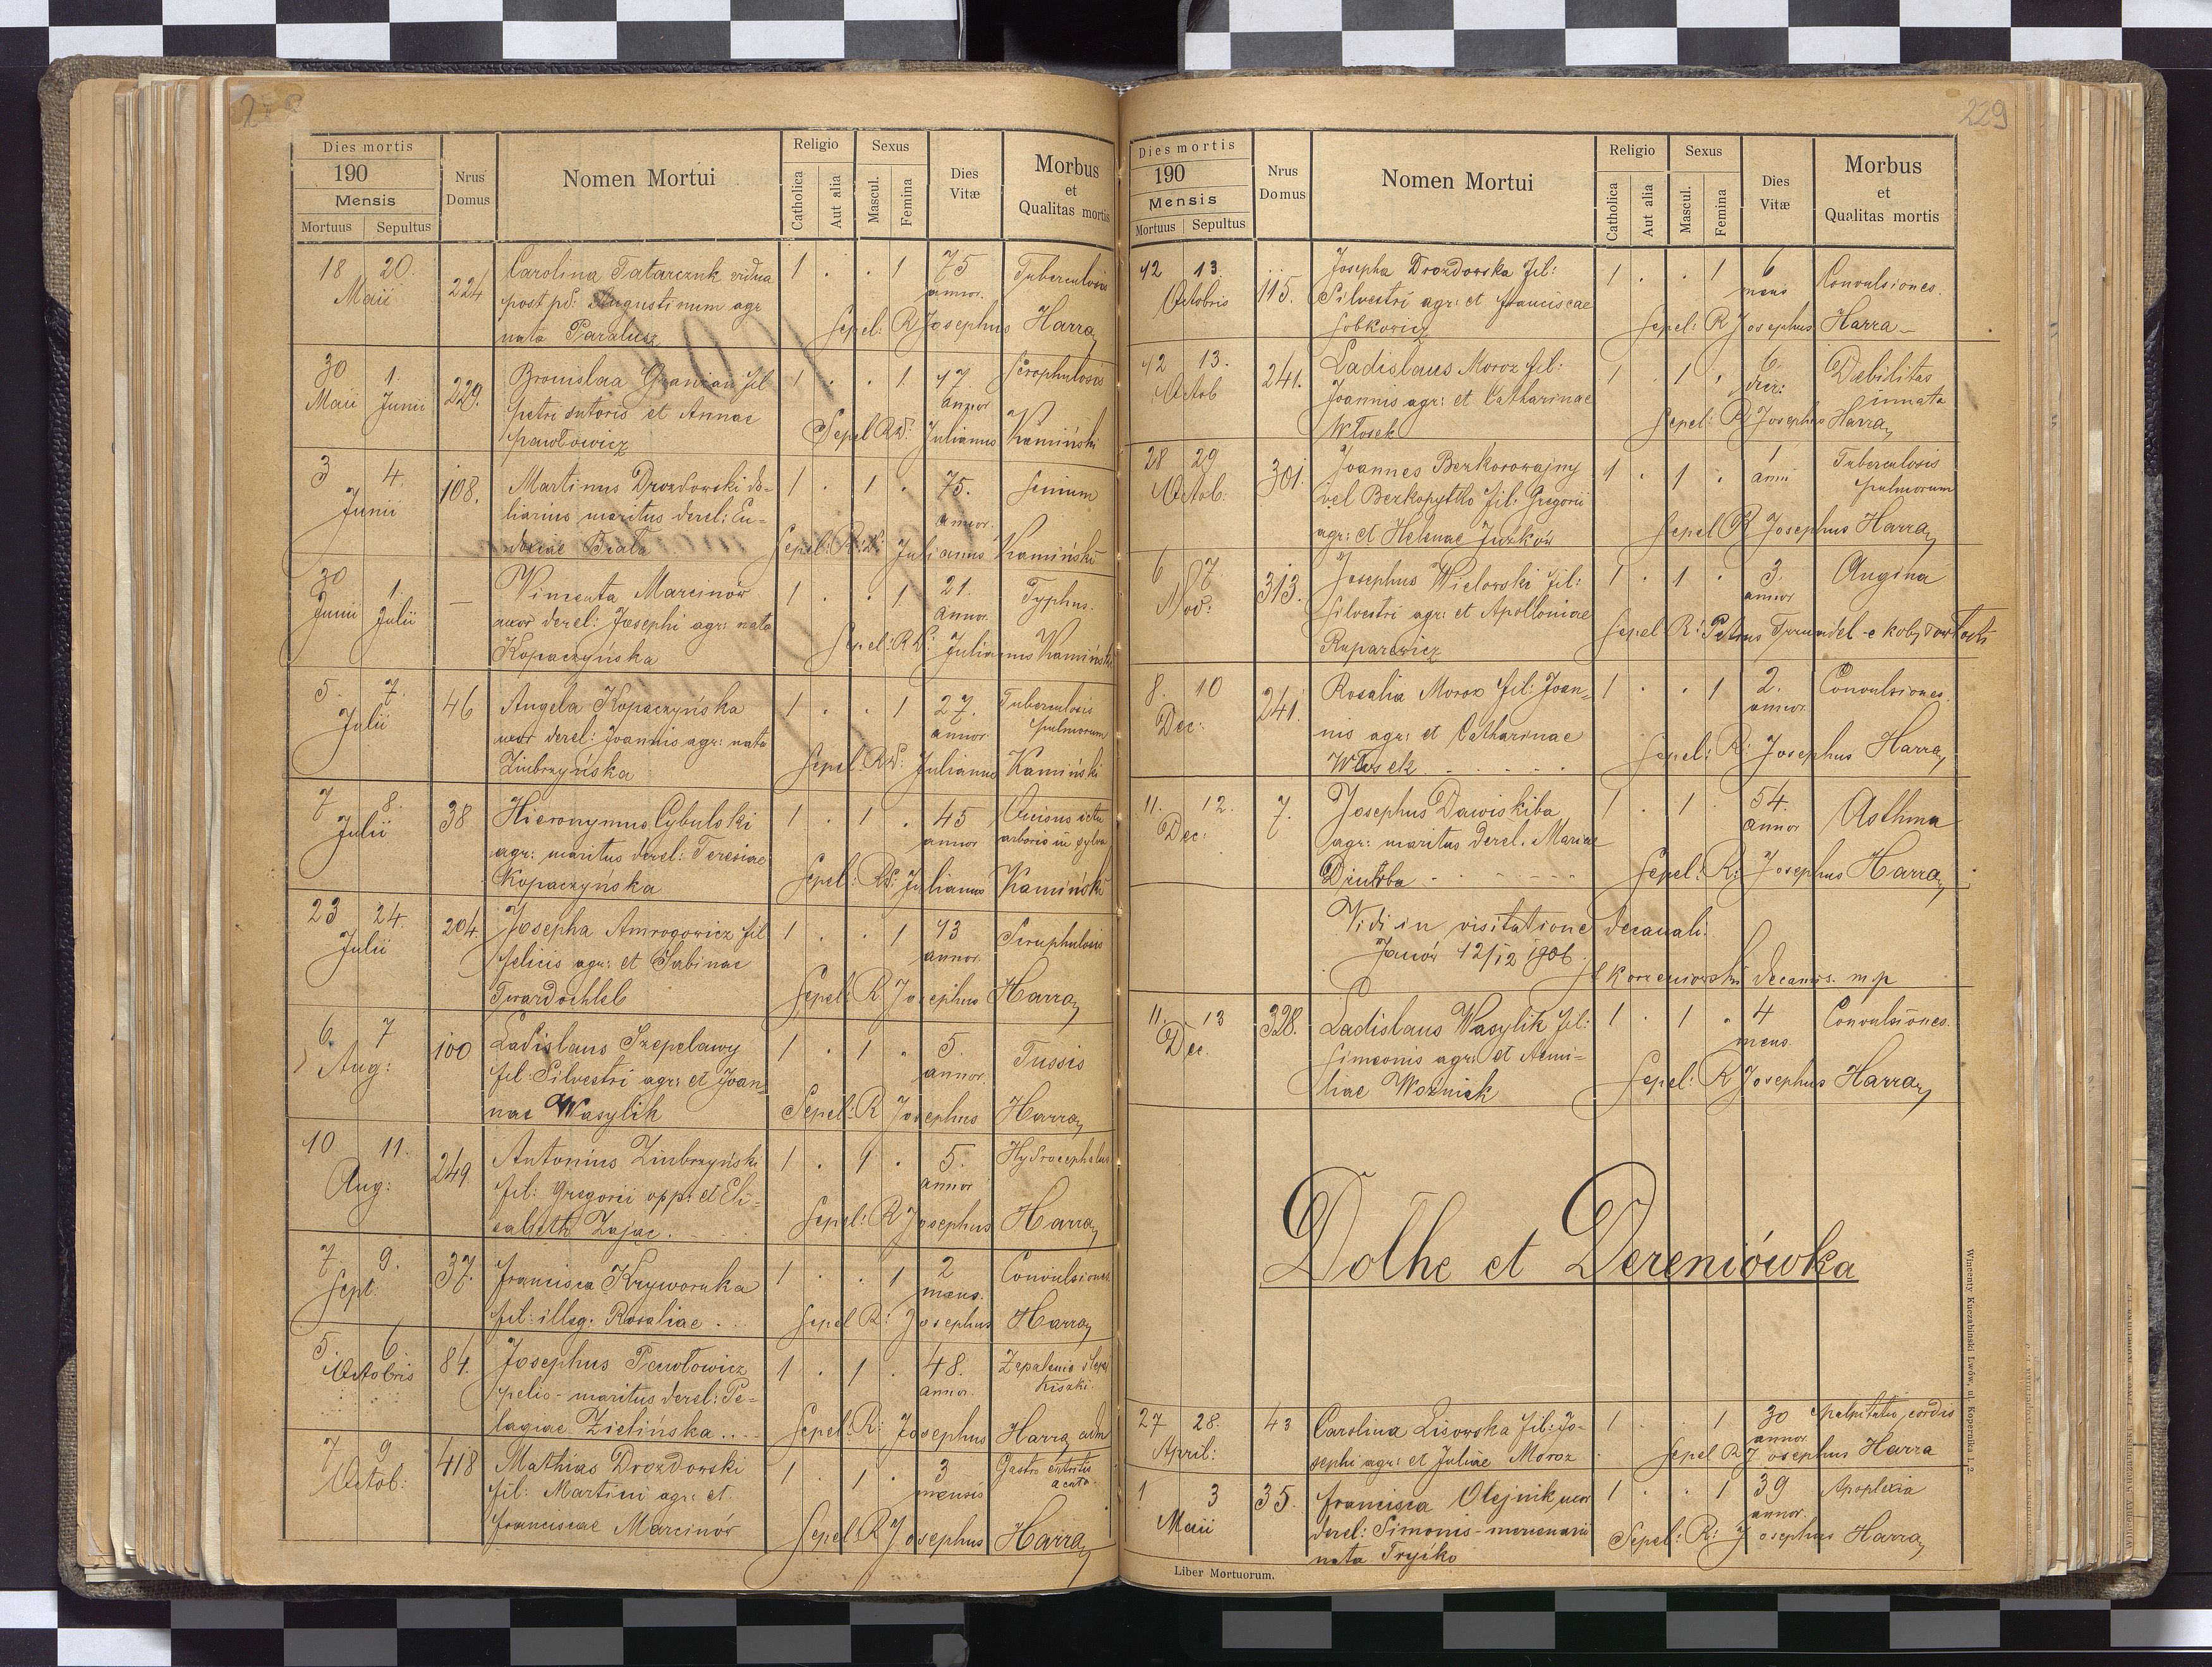 229
Dies mortis
190
Mensis
Mortuus Sepultus
Nrus Domus
Nomen Mortui
Religio
Catholica
Aut alia
Sexus
Mascul.
Femina
Dies Vitæ
Morbus et Qualitas mortis
18 20. 224 Carolina Tatarczuk vidua 1 . . 1 75 Tuberculosis
Maii post pd: Augustinum agr annor.
nata Paralusz Sepel: R Josephus Harra
30 1. 229. Bronislava Granian fil 1 . . 1. 17. Scrophulosis
Maii Junii petri sutoris et Annae annor
Pawłowicz Sepel Rd: Julianus Kamiński
3 4. 108. Martinus Drozdowski do- 1 . 1 . 75. Senium
Junii liarius maritus derel: Eu- annor.
doxiae Brata Sepel: R:d: Julianus Kamiński
30 1. — Vincenta Marcinów 1 . . 1. 21. Typhus.
Junii Julii uxor derel: Josephi agr: nata annor.
Kopaczyńska Sepel: R d: Julianus Kamiński
5. 7. 46 Angela Kopaczyńska 1 . . 1 27. Tuberculosis
Julii uxor derel: Joannis agr: nata annor pulmorum
Ziubrzyńska Sepel: Rd: Julianus Kamiński
7 8. 38 Hieronymus Cybulski 1 . 1 . 45 Occisus ictu
Julii agr: maritus derel: Teresiae annor arboris in sylva
Kopaczyńska Sepel: Rd: Julianus Kamiński
23 24. 204. Josepha Amrogowicz fil 1 . . 1 13 Scruphulosis
Julii felicis agr: et Sabinae annor.
Twardochleb Sepel: R Josephus Harra
6. 7 100 Ladislaus Szepelawy 1 . 1 . 5. Tussis
Aug: fil: Silvestri agr: et Joan- annor.
nae Wasylik Sepel: R Josephus Harra
10 11. 249. Antonius Ziubrzyński 1 . 1 . 5. Hydrocephalus
Aug: fil: Gregorii opp: et Eli- annor
sabeth Zając . Sepel: R Josephus Harra
7 9. 37. Francisca Kryworuka 1 . . 1 2 Convulsiones
Sept. fil: illeg. Rosaliae . . mens. Sepel R: Josephus Harra
5. 6. 84. Josephus Pawłowicz 1 . 1 . 48. Zapalenie ślepej
Octobris pelio- maritus derel: Pe- annor. kiszki.
lagiae Zielińska . . . Sepel: R: Josephus Harra adm
7 9 418 Mathias Drozdowski 1 . 1 . 3 Gastro entritis
Octob: fil: Martini agr: et mensis acuta
franciscae Marcinów Sepel: R Josephus Harra
229
Dies mortis
190
Mensis
Mortuus Sepultus
Nrus Domus
Nomen Mortui
Religio
Catholica
Aut alia
Sexus
Mascul.
Femina
Dies Vitæ
Morbus et Qualitas mortis
12 13 115. Josepha Drozdowska fil: 1 . . 1 6 Convulsiones.
Octobris Silvestri agr: et franciscae mens
Sobkowicz Sepel: R Josephus Harra
12 13. 241. Ladislaus Moroz fil: 1 . 1 . 6 Debilitas
Octob Joannis agr: et Catharinae dier: innata
Włosek Sepel: R: Josephus Harra
28 29 301. Joannes Bezkorowajny 1 . 1 . 1 Tuberculosis
Octob: vel Bezkopytto fil: Gregorii anni pulmorum
agr: et Helenae Juzków Sepel R Josephus Harra
6 7. 313. Josephus Wielowski fil: 1 . 1 . 3. Angina
Nov: Silvestri agr: et Apolloniae annor
Ruparewicz Sepel R: Petrus
8. 10 241. Rosalia Moroz fil: Joan- 1 . . 1 2. Convulsiones.
Dec: nis agr: et Catharinae annor.
Włosek Sepel: R: Josephus Harra
11. 12. 7. Josephus Dawiskiba 1 . 1 . 54. Asthma
Dec: agr: maritus derel. Mariae annor
Dziuba Sepel: R: Josephus Harra
Vidi in visitatione decanali.
Janów 12/12 1906.
Korzeniowski decanus. mp
11. 13 328. Ladislaus Wasylik fil: 1 . 1 . 4 Convulsiones.
Dec. Simeonis agr: et Aemi- mens
liae Wozniak Sepel: R Josephus Harra
Dołhe et Dereniówka
27 28. 43 Carolina Lisowska fil: Jo- 1 . . 1 30 palpitatio cordis
April: sephi agr: et Juliae Moroz annor. Sepel R Josephus Harra
1 3 35. Francisca Olejnik uxor 1 . . 1 39 Apoplexia
Maii derel: Simonis - mercenarii annor.
nata Tryśko Sepel: R: Josephus Harra
Liber Mortuorum.
Wincenty Kuczabinski Lwów, ul. Kopernika l. 2.